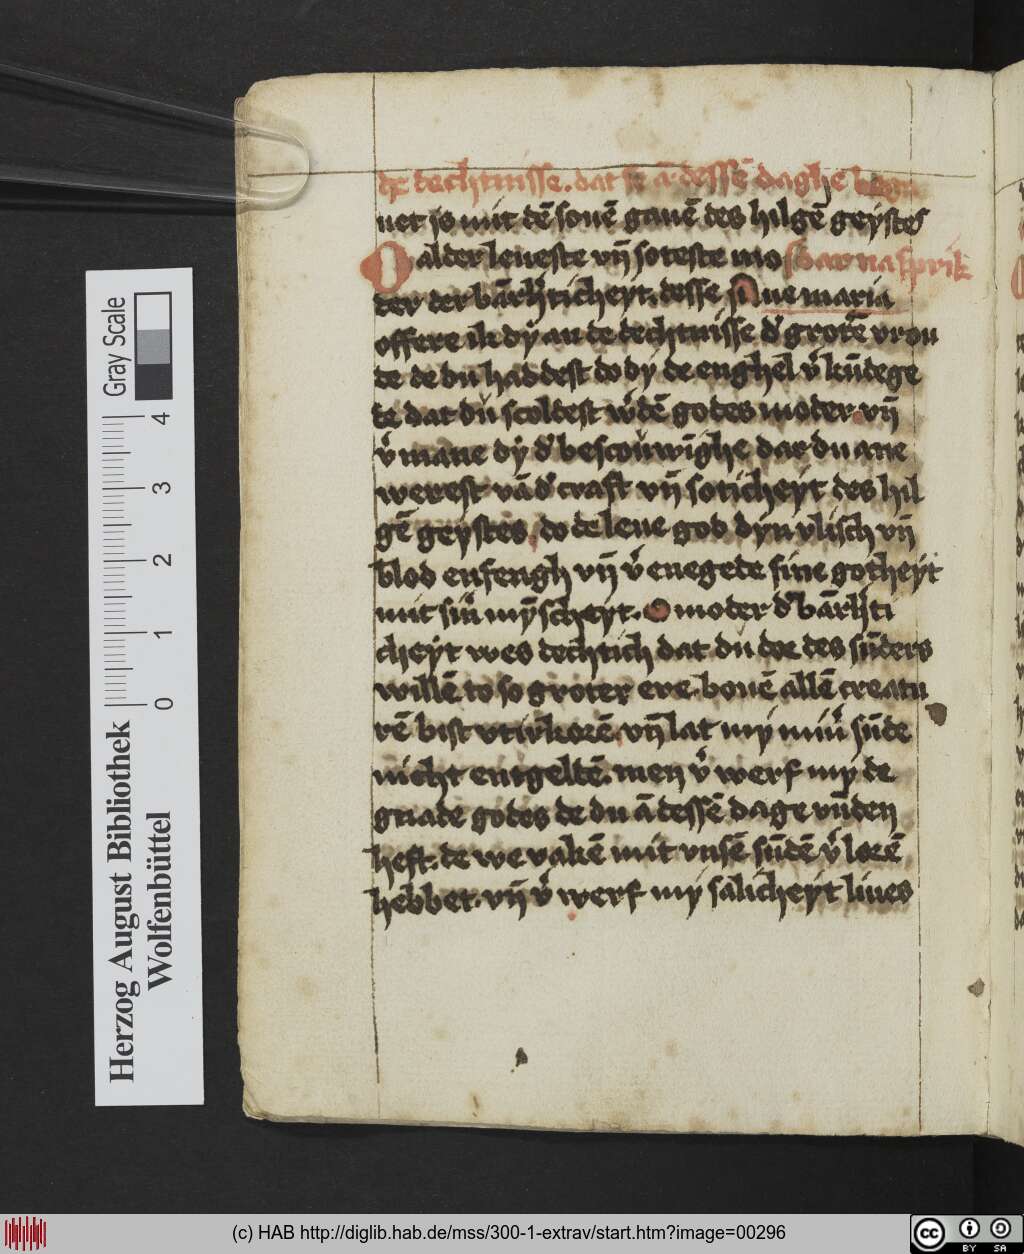 de dechtnisse. dat se ā dessē daghē begn
uet is mit dē souē gauē des hilgē geystes
O alder leueste vn̄ soteste mo
dar na sprik
der der bārh'ticheyt. desse
Aue maria
offere ik dy an de dechtnisse d' grotē vrou
de de du haddest do dy de enghel v'kūdege
te dat du scoldest w'dē godes moder. vn̄
v'mane dy d' bescouwīghe dar du ane
werest vā d' craft vn̄ soticheyt des hil
gē geystes. do de leue god dyn vlisch vn̄
blod enfengh vn̄ v'enegede sine gotheyt
mit sin' mȳscheyt. O moder d' bārh'ti
cheyt wes dechtich dat du dor des sūders
willē to so groter ere. bouē allē creatu
rē bist vtirkorē. vn̄ lat my min' sūde
nicht entgeldē. men v'werf my de
gnade godes de du ā dessē dage vūden
heft. de we vakē mit vnsē sūdē v'lorē
hebbet. vn̄ v'werf my salicheyt liues
Herzog August Bibliothek
Wolfenbüttel
Gray Scale
0 1 2 3 4
(c) HAB http://diglib.hab.de/mss/300-1-extrav/start.htm?image=00296
cc BY SA